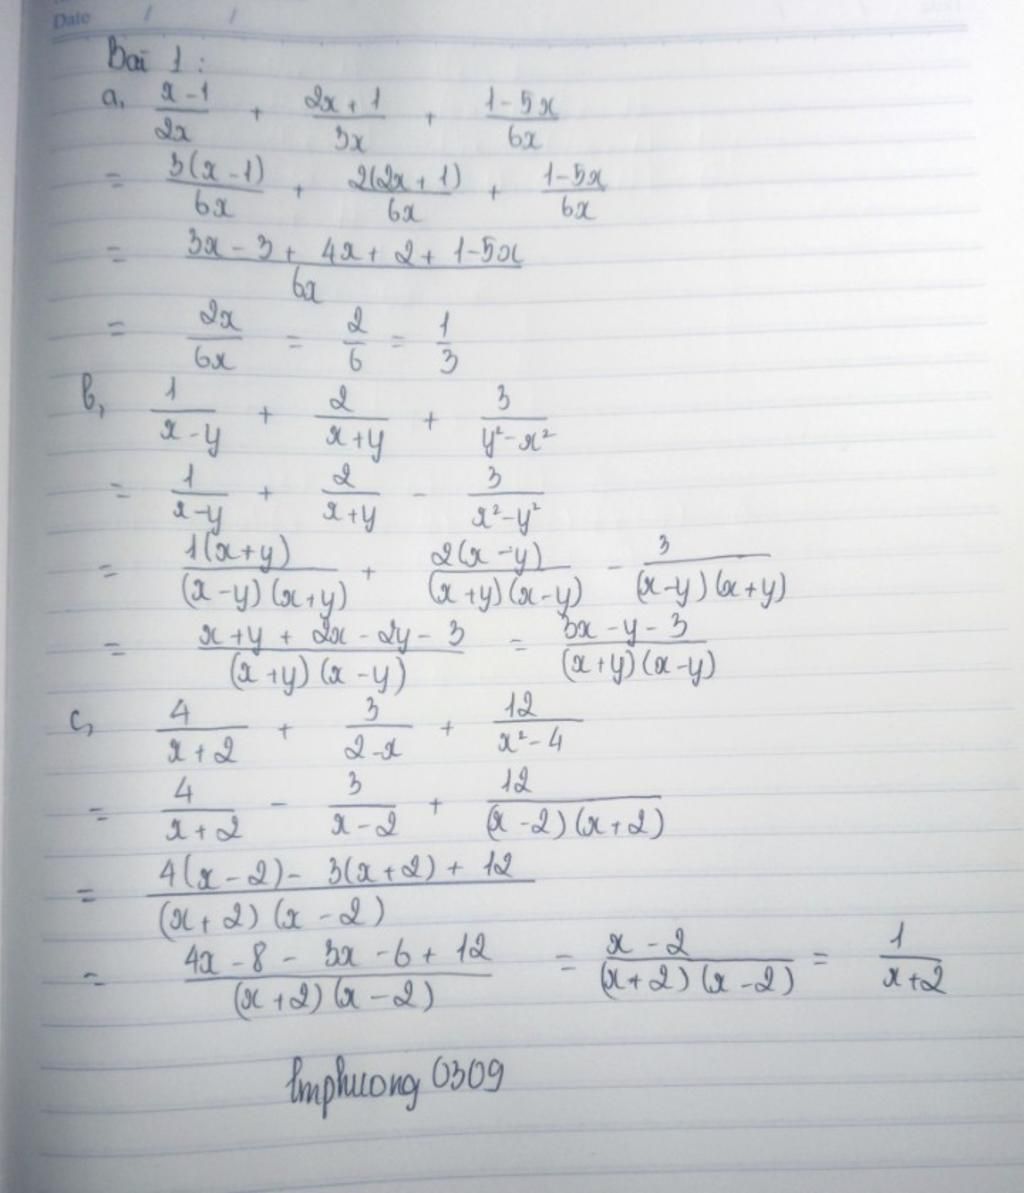 Date / /
Bài 1 :
a, (x-1)/(2x) + (2x+1)/(3x) + (1-5x)/(6x)
= 3(x-1)/(6x) + 2(2x+1)/(6x) + (1-5x)/(6x)
= (3x-3+4x+2+1-5x)/(6x)
= 2x/(6x) = 2/6 = 1/3
b, 1/(x-y) + 2/(x+y) + 3/(y²-x²)
= 1/(x-y) + 2/(x+y) - 3/(x²-y²)
= 1(x+y)/((x-y)(x+y)) + 2(x-y)/((x+y)(x-y)) - 3/((x-y)(x+y))
= (x+y+2x-2y-3)/((x+y)(x-y)) = (3x-y-3)/((x+y)(x-y))
c, 4/(x+2) + 3/(2-x) + 12/(x²-4)
= 4/(x+2) - 3/(x-2) + 12/((x-2)(x+2))
= (4(x-2)-3(x+2)+12)/((x+2)(x-2))
= (4x-8-3x-6+12)/((x+2)(x-2)) = (x-2)/((x+2)(x-2)) = 1/(x+2)
lmphuong 0309